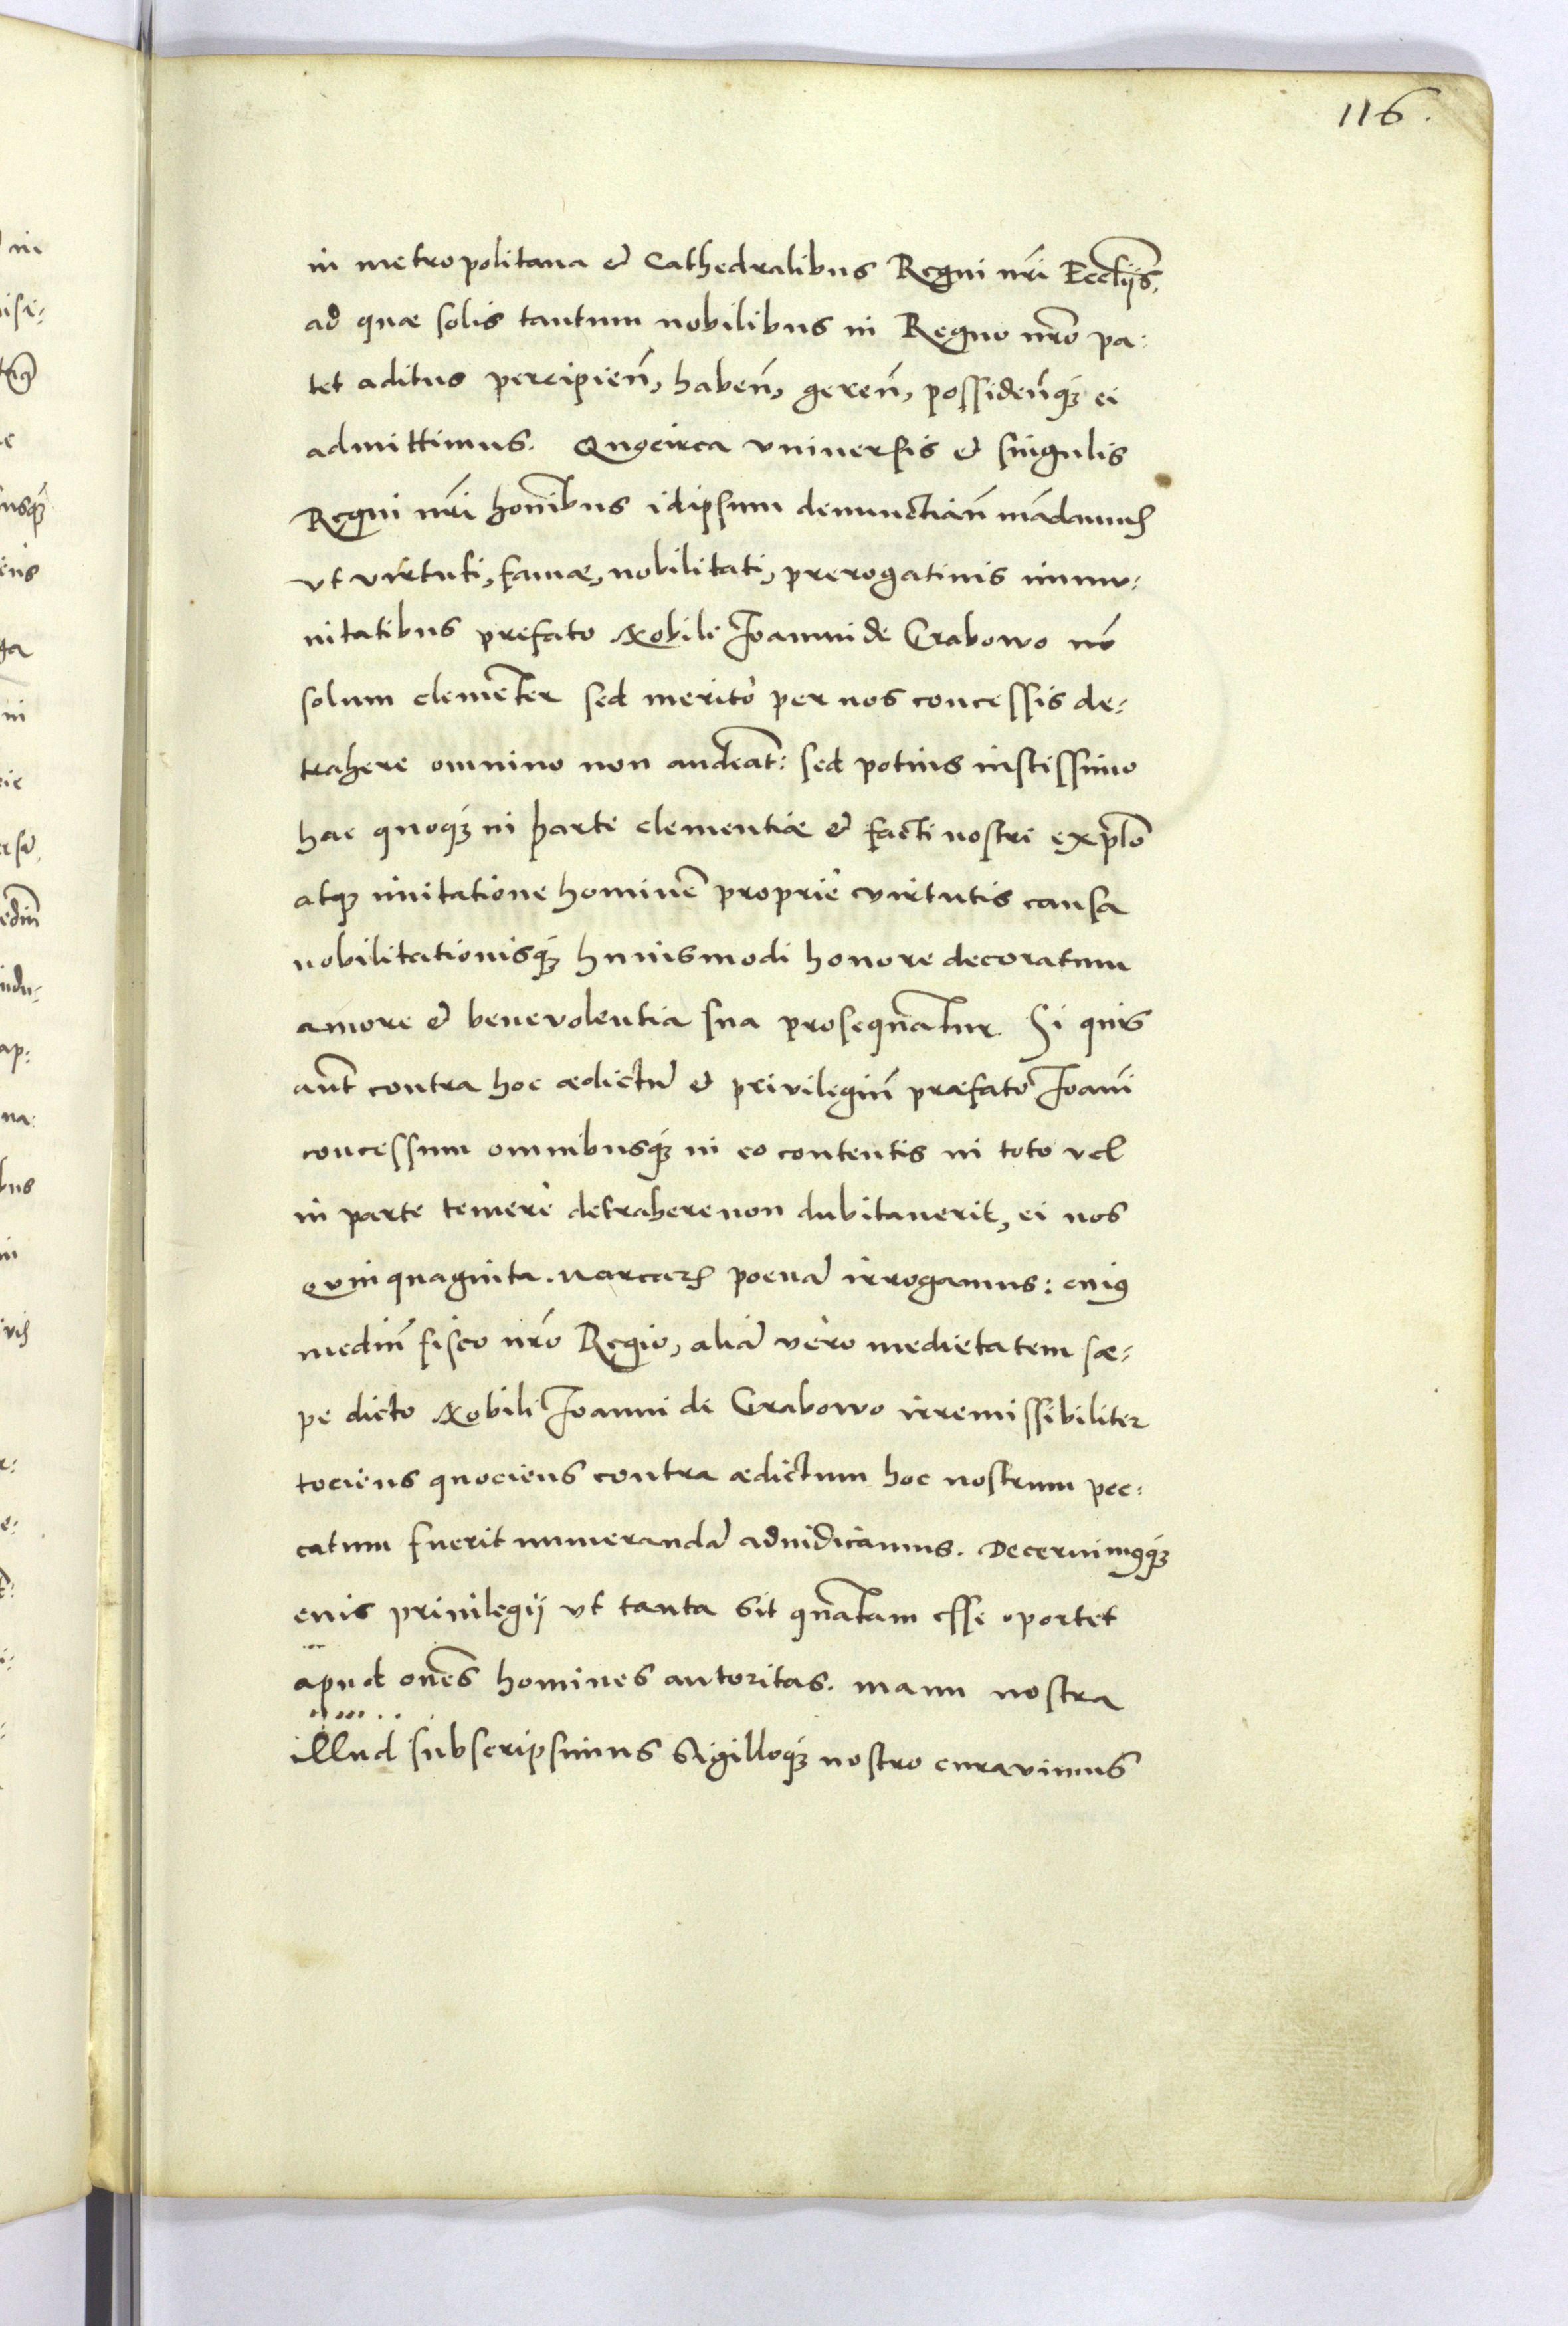 116.
in metropolitana et Cathedralibus Regni nrĩ Eccľijs,
ad quæ solis tantum nobilibus in Regno nrõ pa:
tet aditus percipieñ, habeñ, gereñ, possideñq́ ei
admittimus. Quocirca vniuersis et singulis
Regni nrĩ homĩbus idipsum denunctiañ mãdamus
vt virtuti, famæ, nobilitati, prerogatiuis immu:
nitatibus prefato Nobili Joanni de Grabowo nõ
solum clemẽter sed meritò per nos concessis de:
trahere omnino non audeãt: sed potius iustissimo
hac quoq́ in parte clementiæ et facti nostri exẽplo
atq́ imitatione hominẽ proprie virtutis causa
nobilitationisq́ huiusmodi honore decoratum
amore et beneuolentia sua prosequãtur. Si quis
aũt contra hoc ædictũ et priuilegiũ præfato Joañi
concessum omnibusq́ in eo contentis in toto vel
in parte temerè detrahere non dubitauerit, ei nos
quinquaginta marcarũ poenã irrogamus: cuiꝯ
mediũ fisco nrõ Regio, aliã vero medietatem sæ:
pe dicto Nobili Joanni de Grabowo irremissibiliter
tociens quociens contra ædictum hoc nostrum pec:
catum fuerit numerandã adiudicamus. Decernimꝯq́
cuis priuilegij vt tanta sit quãtam esse oportet
apud oñes homines autoritas. manu nostra
illud subscripsimus Sigilloq́ nostro curauimus